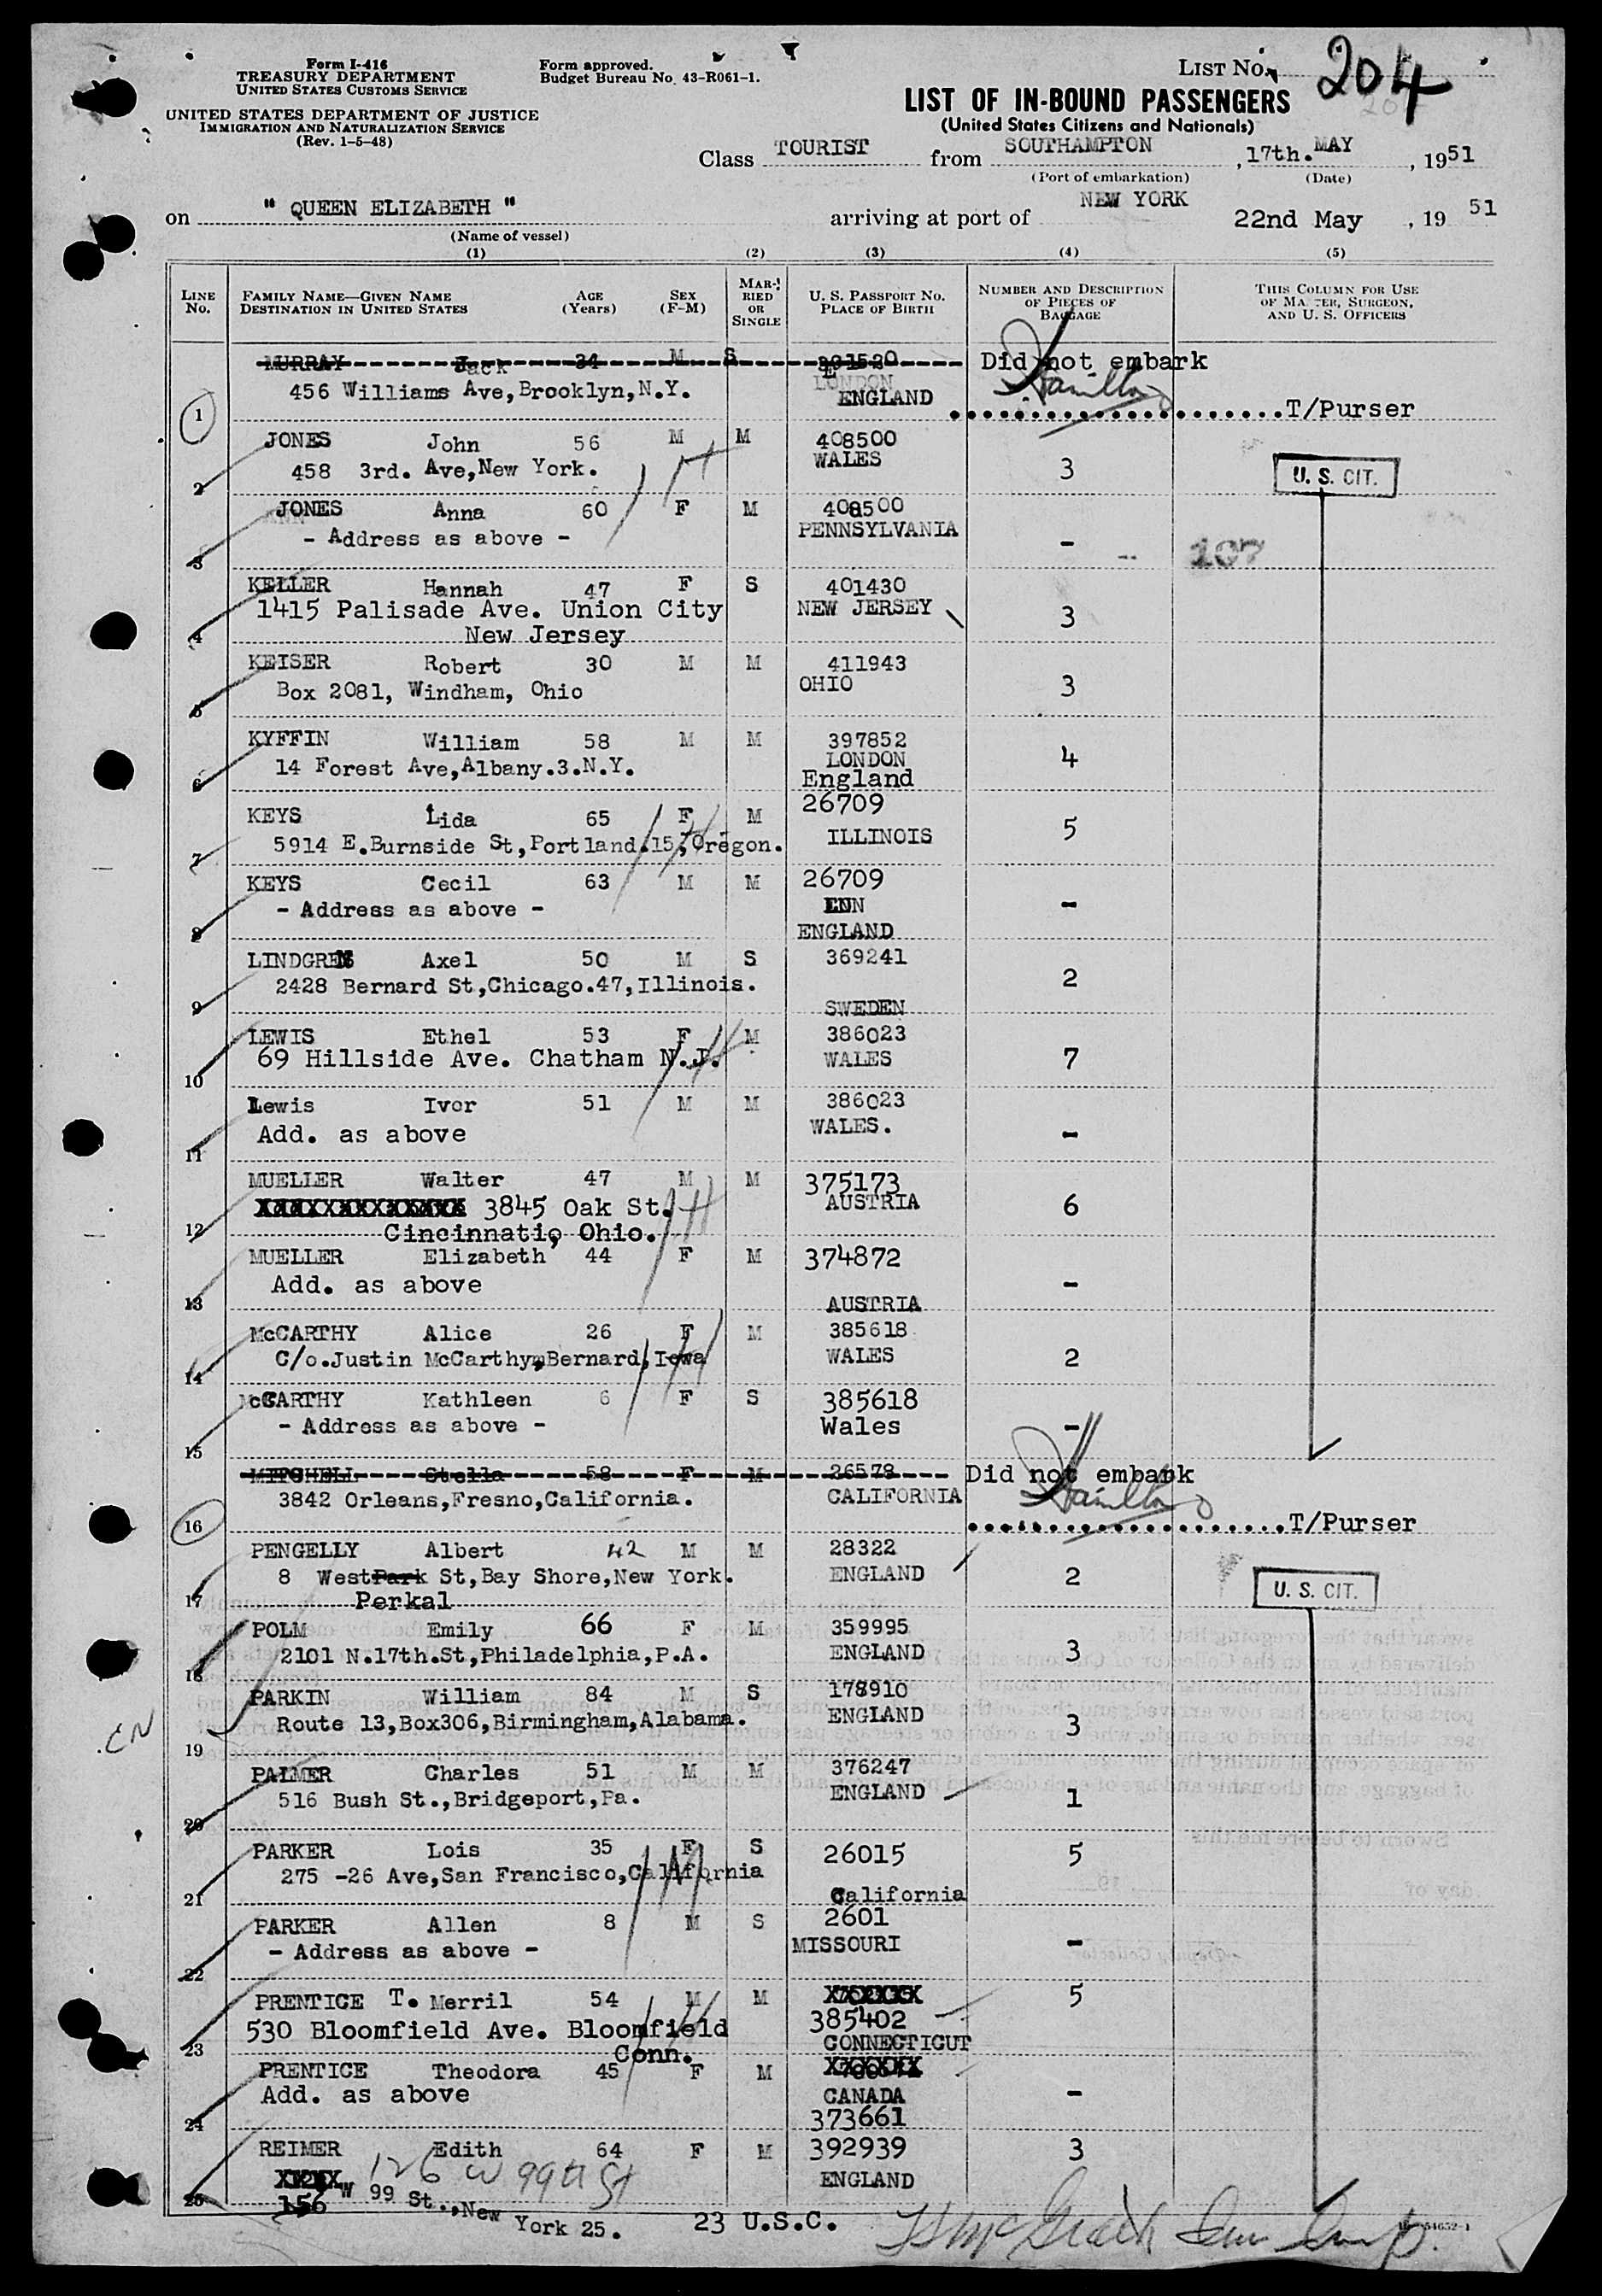 Form I-416
TREASURY DEPARTMENT
UNITED STATES CUSTOMS SERVICE
UNITED STATES DEPARTMENT OF JUSTICE
IMMIGRATION AND NATURALIZATION SERVICE
(Rev. 1-5-48)
Form approved.
Budget Bureau No. 43-R061-1.
LIST No. 204
LIST OF IN-BOUND PASSENGERS
(United States Citizens and Nationals)
Class TOURIST from SOUTHAMPTON, 17th. MAY, 1951
(Port of embarkation) (Date)
on " QUEEN ELIZABETH " arriving at port of NEW YORK 22nd May, 19 51
(Name of vessel)
(1) (2) (3) (4) (5)
LINE No. FAMILY NAME—GIVEN NAME DESTINATION IN UNITED STATES AGE (Years) SEX (F-M) MARRIED OR SINGLE U. S. PASSPORT No. PLACE OF BIRTH NUMBER AND DESCRIPTION OF PIECES OF BAGGAGE THIS COLUMN FOR USE OF MASTER, SURGEON, AND U. S. OFFICERS
MURRAY Jack 34 M S 391520 Did not embark
LONDON
456 Williams Ave,Brooklyn,N.Y. ENGLAND Hamilton
1 T/Purser
JONES John 56 M M 408500
458 3rd. Ave,New York. WALES 3 U. S. CIT.
2
JONES Anna 60 F M 408500
- Address as above - PENNSYLVANIA - -- 107
3
KELLER Hannah 47 F S 401430
1415 Palisade Ave. Union City NEW JERSEY 3
4 New Jersey
KEISER Robert 30 M M 411943
Box 2081, Windham, Ohio OHIO 3
5
KYFFIN William 58 M M 397852
14 Forest Ave,Albany.3.N.Y. LONDON 4
6 England
KEYS Lida 65 F M 26709
5914 E.Burnside St,Portland.15,Oregon. ILLINOIS 5
7
KEYS Cecil 63 M M 26709
- Address as above - -
8 ENGLAND
LINDGREN Axel 50 M S 369241
2428 Bernard St,Chicago.47,Illinois. 2
9 SWEDEN
LEWIS Ethel 53 F M 386023
69 Hillside Ave. Chatham N.J. WALES 7
10
Lewis Ivor 51 M M 386023
Add. as above WALES. -
11
MUELLER Walter 47 M M 375173
XXXXXXXXXXXXXX 3845 Oak St. AUSTRIA 6
12 Cincinnati, Ohio.
MUELLER Elizabeth 44 F M 374872
Add. as above -
13 AUSTRIA
McCARTHY Alice 26 F M 385618
C/o.Justin McCarthy,Bernard,Iowa WALES 2
14
McCARTHY Kathleen 6 F S 385618
- Address as above - Wales -
15
MITCHELL Stella 58 F M 26578 Did not embark
3842 Orleans,Fresno,California. CALIFORNIA Hamilton
16 T/Purser
PENGELLY Albert 42 M M 28322
8 West Park St,Bay Shore,New York. ENGLAND 2 U. S. CIT.
17 Perkal
POLM Emily 66 F M 359995
2101 N.17th.St,Philadelphia,P.A. ENGLAND 3
18
PARKIN William 84 M S 178910
Route 13,Box306,Birmingham,Alabama. ENGLAND 3
EN 19
PALMER Charles 51 M M 376247
516 Bush St.,Bridgeport,Pa. ENGLAND 1
20
PARKER Lois 35 F S 26015 5
275 -26 Ave,San Francisco,California
21 California
PARKER Allen 8 M S 2601
- Address as above - MISSOURI -
22
PRENTICE T. Merril 54 M M XXXXXX 5
530 Bloomfield Ave. Bloomfield 385402
23 Conn. CONNECTICUT
PRENTICE Theodora 45 F M XXXXXX
Add. as above CANADA -
24 373661
REIMER Edith 64 F M 392939 3
XXXX 126 W 99th St ENGLAND
25 156 W 99 St.,New York 25.
23 U.S.C.